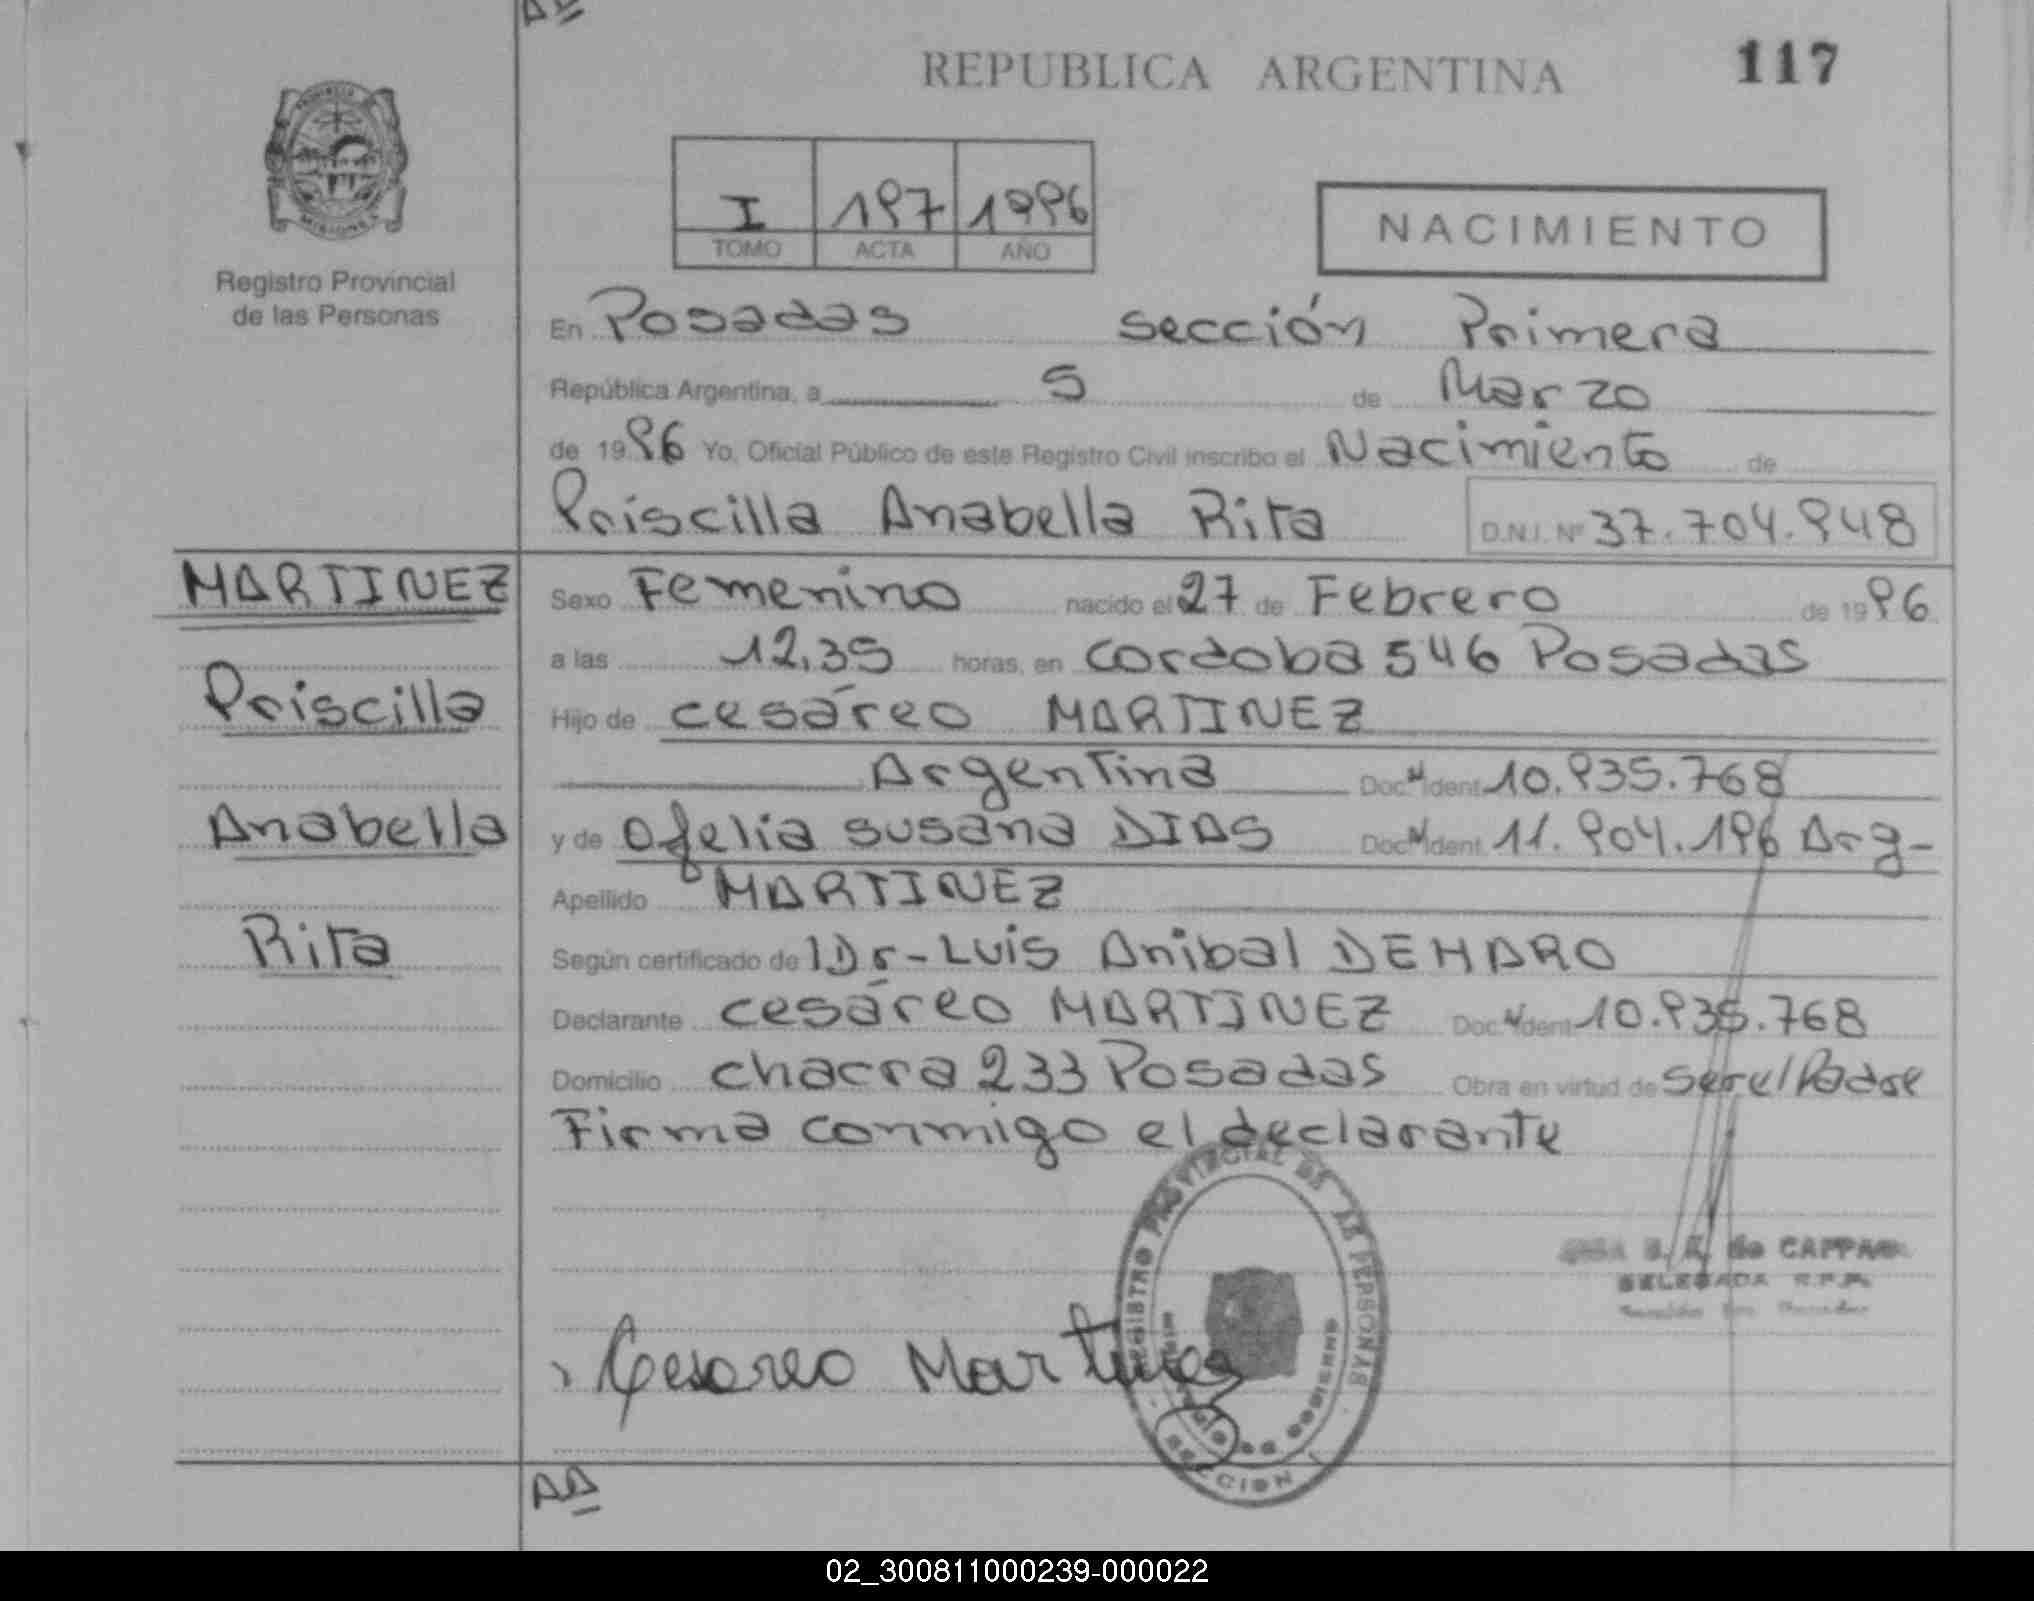 AA
REPUBLICA ARGENTINA
117
PROVINCIA
MISIONES
Registro Provincial
de las Personas
I 197 1996
TOMO ACTA AÑO
NACIMIENTO
En Posadas sección Primera
República Argentina, a 5 de Marzo
de 1996 Yo, Oficial Público de este Registro Civil inscribo el Nacimiento de
Priscilla Anabella Rita D.N.I. Nº 37.704.948
MARTINEZ
Priscilla
Anabella
Rita
Sexo Femenino nacido el 27 de Febrero de 1996
a las 12,35 horas, en Cordoba 546 Posadas
Hijo de Cesáreo MARTINEZ
Argentina Doc. N Ident. 10.935.768
y de Ofelia Susana DIAS Doc. N Ident. 11.904.196 Arg-
Apellido MARTINEZ
Según certificado de Dr- Luis Anibal DEHARO
Declarante Cesáreo MARTINEZ Doc. N Ident. 10.935.768
Domicilio Chacra 233 Posadas Obra en virtud de Ser el Padre
Firma conmigo el declarante
REGISTRO PROVINCIAL DE LAS PERSONAS
DE GOBIERNO
SECCION 1
de CAPPA
DELEGADA R.P.P.
Cesareo Martinez
AA
02_300811000239-000022